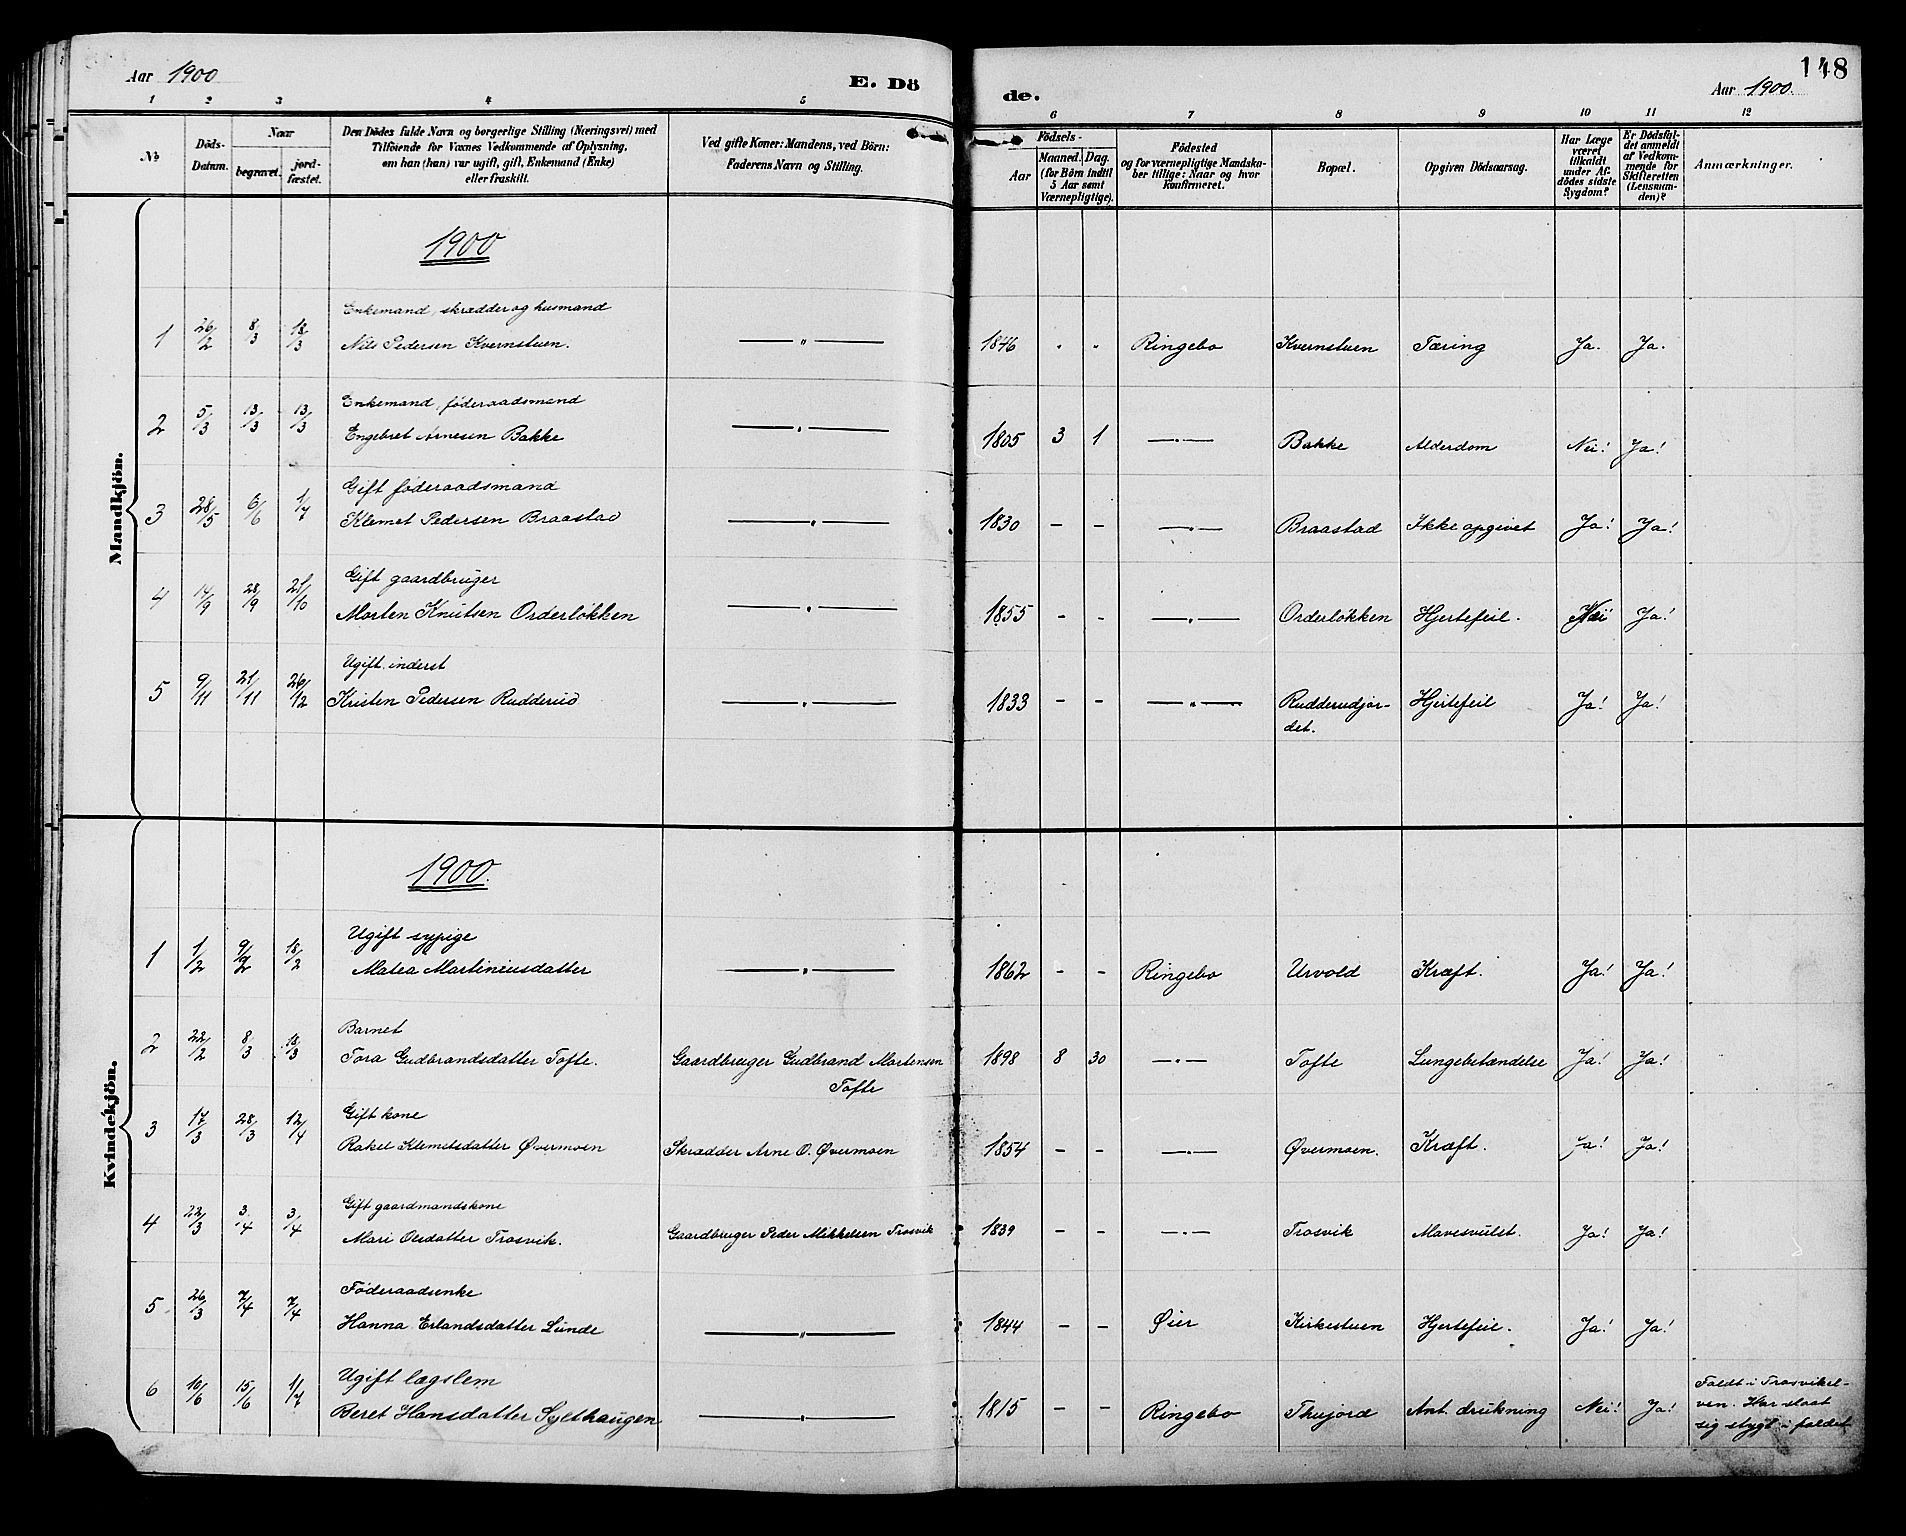 148
Aar 1900
E. Dö
de.
Aar 1900.
1 2 3 4 5
6 7 8 9 10 11 12
№
Döds-Datum.
Naar
begravet.
jord-fæstet.
Den Dödes fulde Navn og borgerlige Stilling (Næringsvei) med
Tilföiende for Voxnes Vedkommende af Oplysning,
om han (hun) var ugift, gift, Enkemand (Enke)
eller fraskilt.
Ved gifte Koner: Mandens, ved Börn:
Faderens Navn og Stilling.
Födsels-
Aar
Maaned. Dag.
(for Börn indtil
5 Aar samt
Værnepligtige).
Födested
og for værnepligtige Mandska-
ber tillige: Naar og hvor
konfirmeret.
Bopæl.
Opgiven Dödsaarsag.
Har Læge
været
tilkaldt
under Af-
dödes sidste
Sygdom?
Er Dödsfal-
det anmeldt
af Vedkom-
mende for
Skifteretten
(Lensman-
den)?
Anmærkninger.
Mandkjön.
1900
Enkemand, skrædder og husmand
1 26/2 8/3 18/3 Nils Pedersen Kvernstuen. — " — 1846 " " Ringebo Kvernstuen Tæring Ja. Ja.
Enkemand, føderaadsmand
2 5/3 13/3 13/3 Engebret Arnesen Bakke — " — 1805 3 1 — " — Bakke Alderdom Nei! Ja!
Gift føderaadsmand
3 28/5 6/6 1/7 Klemet Pedersen Braastad — " — 1830 - - — " — Braastad Ikke opgivet Ja! Ja!
Gift gaardbruger
4 14/9 28/9 21/10 Morten Knutsen Orderløkken — " — 1855 - - — " — Orderløkken Hjertefeil. Nei Ja!
Ugift inderst
5 9/11 21/11 26/12 Kristen Pedersen Rudderud — " — 1833 - - — " — Rudderudjor- Hjertefeil Ja! Ja!
det.
Kvindekjön.
1900.
Ugift sypige
1 1/2 9/2 18/2 Matea Martiniusdatter — " — 1862 - - Ringebo Urvold Kræft. Ja! Ja!
Barnet
2 22/2 8/3 18/3 Tora Gudbrandsdatter Tofte. Gaardbruger Gudbrand Mortensen 1898 8 30 — " — Tofte Lungebetændelse Ja! Ja!
Tofte
Gift kone
3 17/3 28/3 12/4 Rakel Klemetsdatter Øvermoen Skrædder Arne O. Øvermoen 1854 - - — " — Øvermoen. Kræft. Ja! Ja!
Gift gaardmandskone
4 22/3 3/4 3/4 Mari Olsdatter Trosvik. Gaardbruger Peder Mikkelsen Trosvik 1839 - - — " — Trosvik Mavesvulst. Ja! Ja!
Føderaadsenke
5 26/3 7/4 7/4 Hanna Erlandsdatter Lunde — " — 1844 - - Øier Kirkestuen Hjertefeil. Ja! Ja!
Ugift lægslem
6 10/6 15/6 1/7 Beret Hansdatter Sylthaugen — " — 1815 - - Ringebo Thujord Ant. drukning Nei! Ja! Faldt i Trosvikel-
ven. Har slaat
sig stygt i faldet